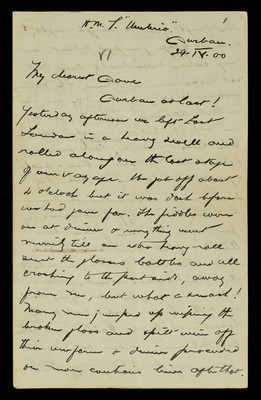 H.M.T. "Umbria". 1
Durban.
24.IV.00
VI
My dearest
Durban at last!
Yesterday afternoon we left East
London in a heavy swell and
rolled along on the last stage
of our voyage. We got off about
4 o'clock but it was dark before
we had gone far. The fiddles were
on at dinner & everything went
merrily till an extra heavy roll
sent the glasses bottles and all
crashing to the port side, away
from me, but what a smash!
Many men jumped up wiping the
broken glass and spilt wine off
their uniforms & dinner proceeded
on more cautious lines after that.